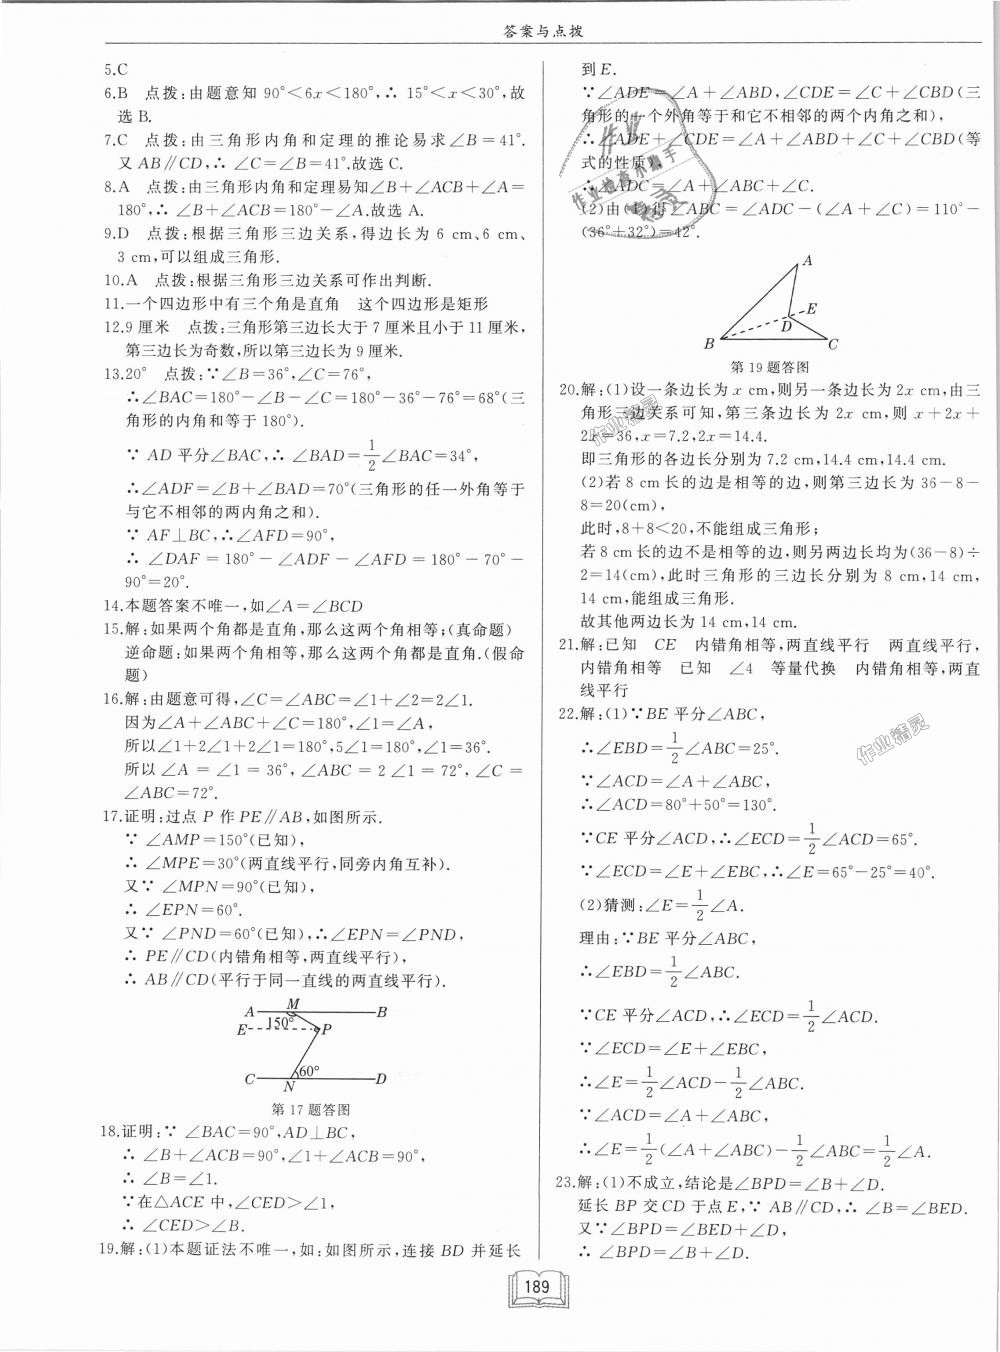 答案与点拨
5.C
6.B　点拨:由题意知 90°<6x<180°,∴ 15°<x<30°,故
选 B.
7.C　点拨:由三角形内角和定理的推论易求∠B=41°.
又 AB∥CD,∴ ∠C=∠B=41°.故选 C.
8.A　点拨:由三角形内角和定理易知∠B+∠ACB+∠A=
180°,∴ ∠B+∠ACB=180°-∠A.故选 A.
9.D　点拨:根据三角形三边关系,得边长为 6 cm、6 cm、
3 cm,可以组成三角形.
10.A　点拨:根据三角形三边关系可作出判断.
11.一个四边形中有三个角是直角　这个四边形是矩形
12.9 厘米　点拨:三角形第三边长大于 7 厘米且小于 11 厘米,
第三边长为奇数,所以第三边长为 9 厘米.
13.20°　点拨:∵∠B=36°,∠C=76°,
∴∠BAC=180°-∠B-∠C=180°-36°-76°=68°(三
角形的内角和等于 180°).
∵ AD 平分∠BAC,∴ ∠BAD=1/2∠BAC=34°,
∴∠ADF=∠B+∠BAD=70°(三角形的任一外角等于
与它不相邻的两内角之和).
∵ AF⊥BC,∴∠AFD=90°,
∴ ∠DAF = 180° - ∠ADF - ∠AFD = 180° - 70° -
90°=20°.
14.本题答案不唯一,如∠A=∠BCD
15.解:如果两个角都是直角,那么这两个角相等;(真命题)
逆命题:如果两个角相等,那么这两个角都是直角.(假命
题)
16.解:由题意可得,∠C=∠ABC=∠1+∠2=2∠1.
因为∠A+∠ABC+∠C=180°,∠1=∠A,
所以∠1+2∠1+2∠1=180°,5∠1=180°,∠1=36°.
所以 ∠A = ∠1 = 36°, ∠ABC = 2 ∠1 = 72°, ∠C =
∠ABC=72°.
17.证明:过点 P 作 PE∥AB,如图所示.
∵ ∠AMP=150°(已知),
∴ ∠MPE=30°(两直线平行,同旁内角互补).
又∵ ∠MPN=90°(已知),
∴ ∠EPN=60°.
又∵ ∠PND=60°(已知),∴∠EPN=∠PND,
∴ PE∥CD(内错角相等,两直线平行),
∴ AB∥CD(平行于同一直线的两直线平行).
A M B
E 150° P
C N 60° D
第 17 题答图
18.证明:∵ ∠BAC=90°,AD⊥BC,
∴ ∠B+∠ACB=90°,∠1+∠ACB=90°,
∴ ∠B=∠1.
∵在△ACE 中,∠CED>∠1,
∴ ∠CED>∠B.
19.解:(1)本题证法不唯一,如:如图所示,连接 BD 并延长
到 E.
∵∠ADE=∠A+∠ABD,∠CDE=∠C+∠CBD(三
角形的一个外角等于和它不相邻的两个内角之和),
∴∠ADE+∠CDE=∠A+∠ABD+∠C+∠CBD(等
式的性质),
∴∠ADC=∠A+∠ABC+∠C.
(2)由(1)得∠ABC=∠ADC-(∠A+∠C)=110°-
(36°+32°)=42°.
A
E
D
B C
第 19 题答图
20.解:(1)设一条边长为 x cm,则另一条边长为 2x cm,由三
角形三边关系可知,第三条边长为 2x cm,则 x+2x+
2x=36,x=7.2,2x=14.4.
即三角形的各边长分别为 7.2 cm,14.4 cm,14.4 cm.
(2)若 8 cm 长的边是相等的边,则第三边长为 36-8-
8=20(cm),
此时,8+8<20,不能组成三角形;
若 8 cm 长的边不是相等的边,则另两边长均为(36-8)÷
2=14(cm),此时三角形的三边长分别为 8 cm,14 cm,
14 cm,能组成三角形.
故其他两边长为 14 cm,14 cm.
21.解:已知　CE　内错角相等,两直线平行　两直线平行,
内错角相等　已知　∠4　等量代换　内错角相等,两直
线平行
22.解:(1)∵BE 平分∠ABC,
∴∠EBD=1/2∠ABC=25°.
∵∠ACD=∠A+∠ABC,
∴∠ACD=80°+50°=130°.
∵CE 平分∠ACD,∴∠ECD=1/2∠ACD=65°.
∵∠ECD=∠E+∠EBC,∴∠E=65°-25°=40°.
(2)猜测:∠E=1/2∠A.
理由:∵BE 平分∠ABC,
∴∠EBD=1/2∠ABC.
∵CE 平分∠ACD,∴∠ECD=1/2∠ACD.
∵∠ECD=∠E+∠EBC,
∴∠E=1/2∠ACD-1/2∠ABC.
∵∠ACD=∠A+∠ABC,
∴∠E=1/2(∠A+∠ABC)-1/2∠ABC=1/2∠A.
23.解:(1)不成立,结论是∠BPD=∠B+∠D.
延长 BP 交 CD 于点 E,∵ AB∥CD,∴ ∠B=∠BED.
又∵∠BPD=∠BED+∠D,
∴ ∠BPD=∠B+∠D.
189
作业精灵
作业精灵
作业
作业检查小助手
精灵